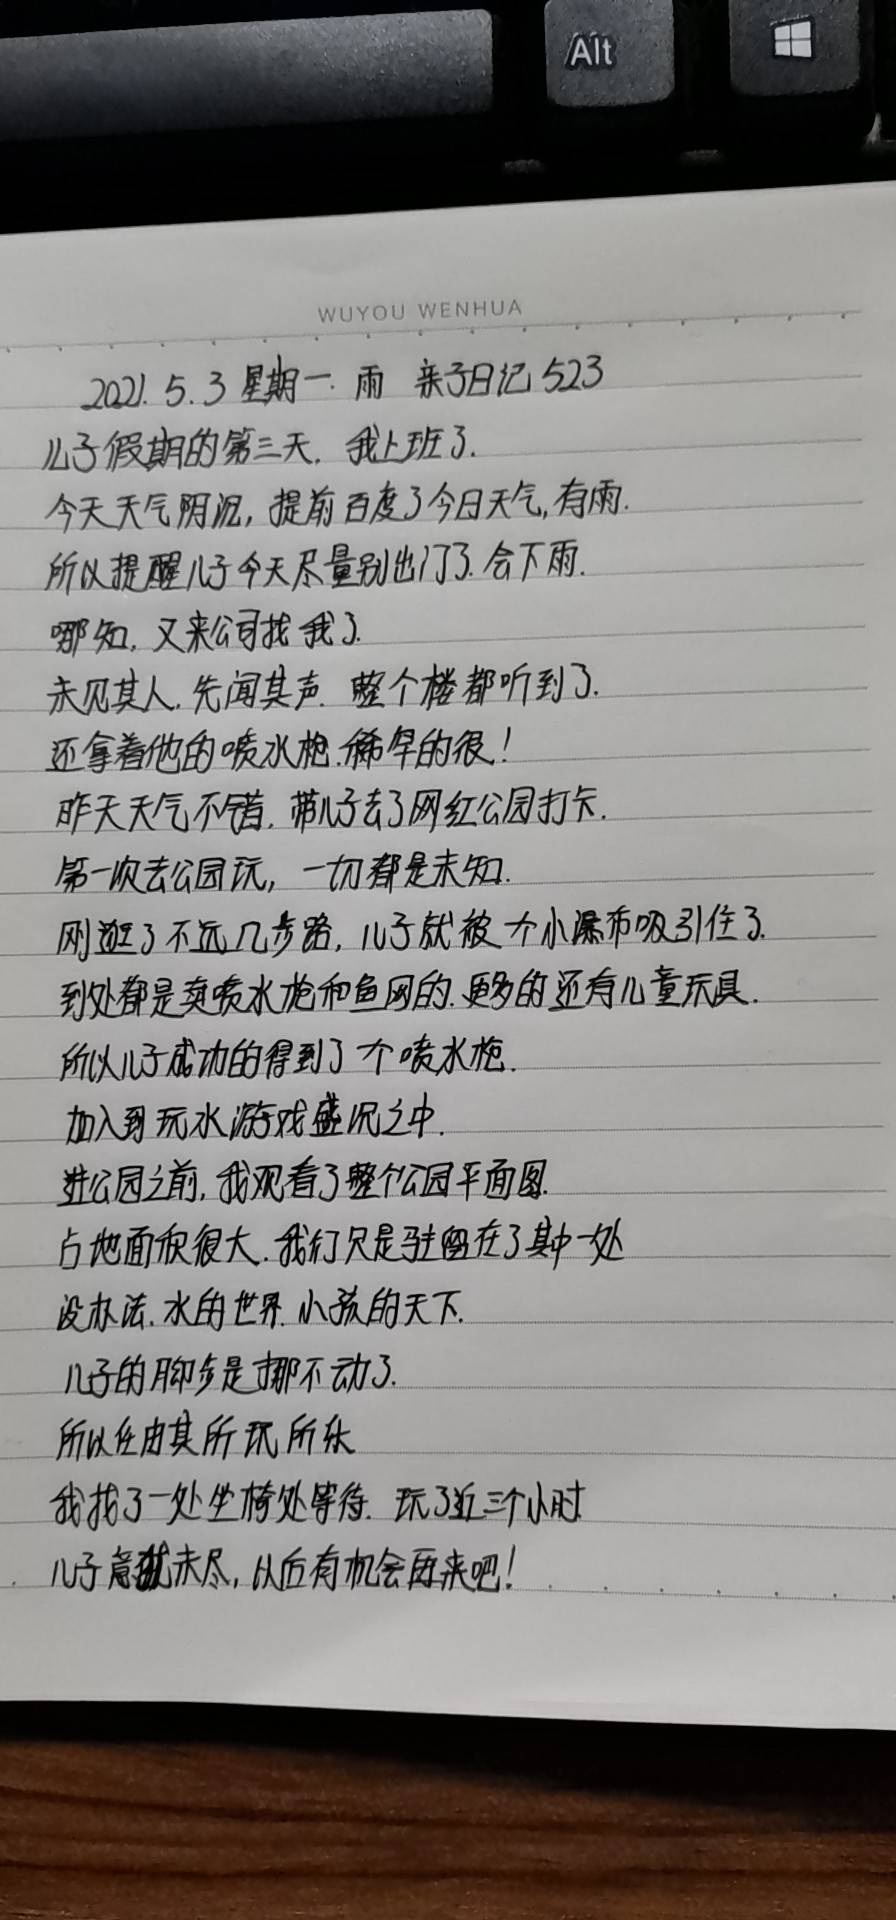 Alt
WUYOU WENHUA
2021.5.3 星期一. 雨 亲子日记523
儿子假期的第三天. 我上班了.
今天天气阴沉, 提前百度了今日天气, 有雨.
所以提醒儿子今天尽量别出门了. 会下雨.
哪知, 又来公司找我了.
未见其人. 先闻其声. 整个楼都听到了.
还拿着他的喷水枪. 稀罕的很!
昨天天气不错. 带儿子去了网红公园打卡.
第一次去公园玩, 一切都是未知.
刚逛了不远几步路, 儿子就被个小瀑布吸引住了.
到处都是卖喷水枪和鱼网的. 更多的还有儿童玩具.
所以儿子成功的得到了个喷水枪.
加入到玩水游戏盛况之中.
进公园之前, 我观看了整个公园平面图.
占地面积很大. 我们只是驻留在了其中一处
没办法. 水的世界. 小孩的天下.
儿子的脚步是挪不动了.
所以任由其所玩所乐
我找了一处坐椅处等待. 玩了近三个小时
儿子意犹未尽, 以后有机会再来吧!